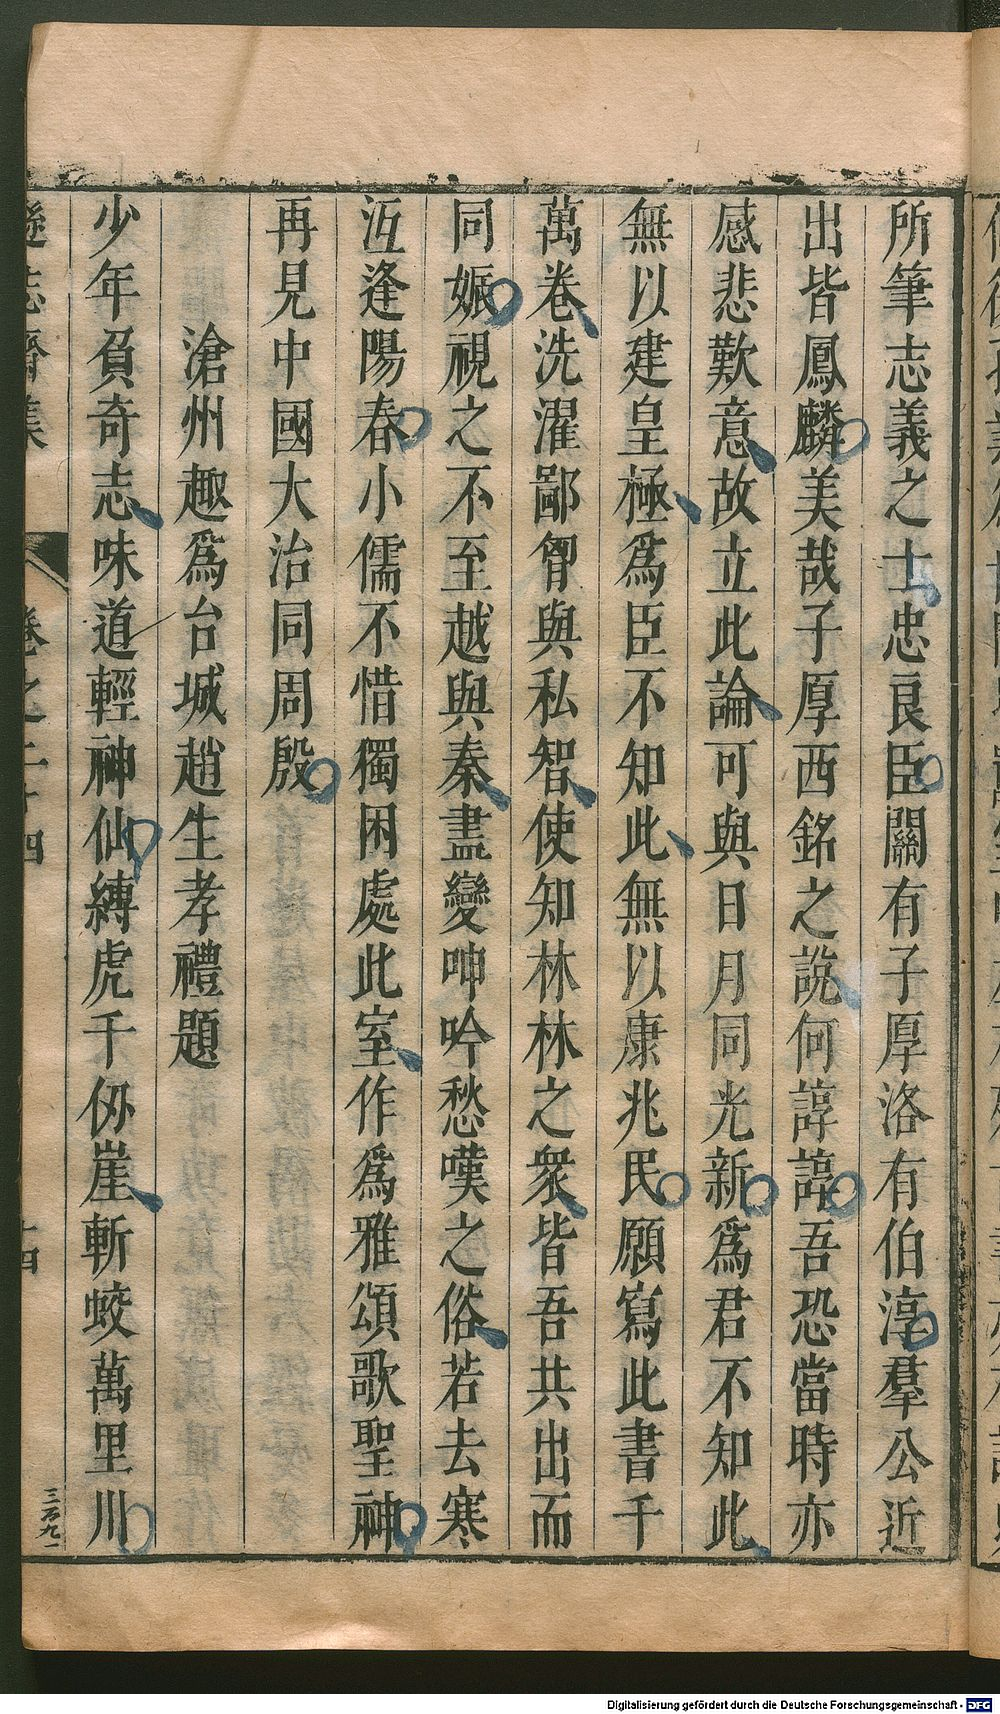 所筆志義之士忠良臣關有子厚洛有伯淳羣公近
出皆鳳麟美哉子厚西銘之說何諄諄吾恐當時亦
感悲歎意故立此論可與日月同光新爲君不知此
無以建皇極爲臣不知此無以康兆民願寫此書千
萬卷洗濯鄙胷與私智使知林林之衆皆吾共出而
同姬視之不至越與秦盡變呻吟愁嘆之俗若去寒
沍逢陽春小儒不惜獨困處此室作爲雅頌歌聖神
再見中國大治同周殷
滄州趣爲台城趙生孝禮題
少年負奇志味道輕神仙縛虎千仭崖斬蛟萬里川
遜志齋集 卷之二十四 十四
三百九一
Digitalisierung gefördert durch die Deutsche Forschungsgemeinschaft - DFG